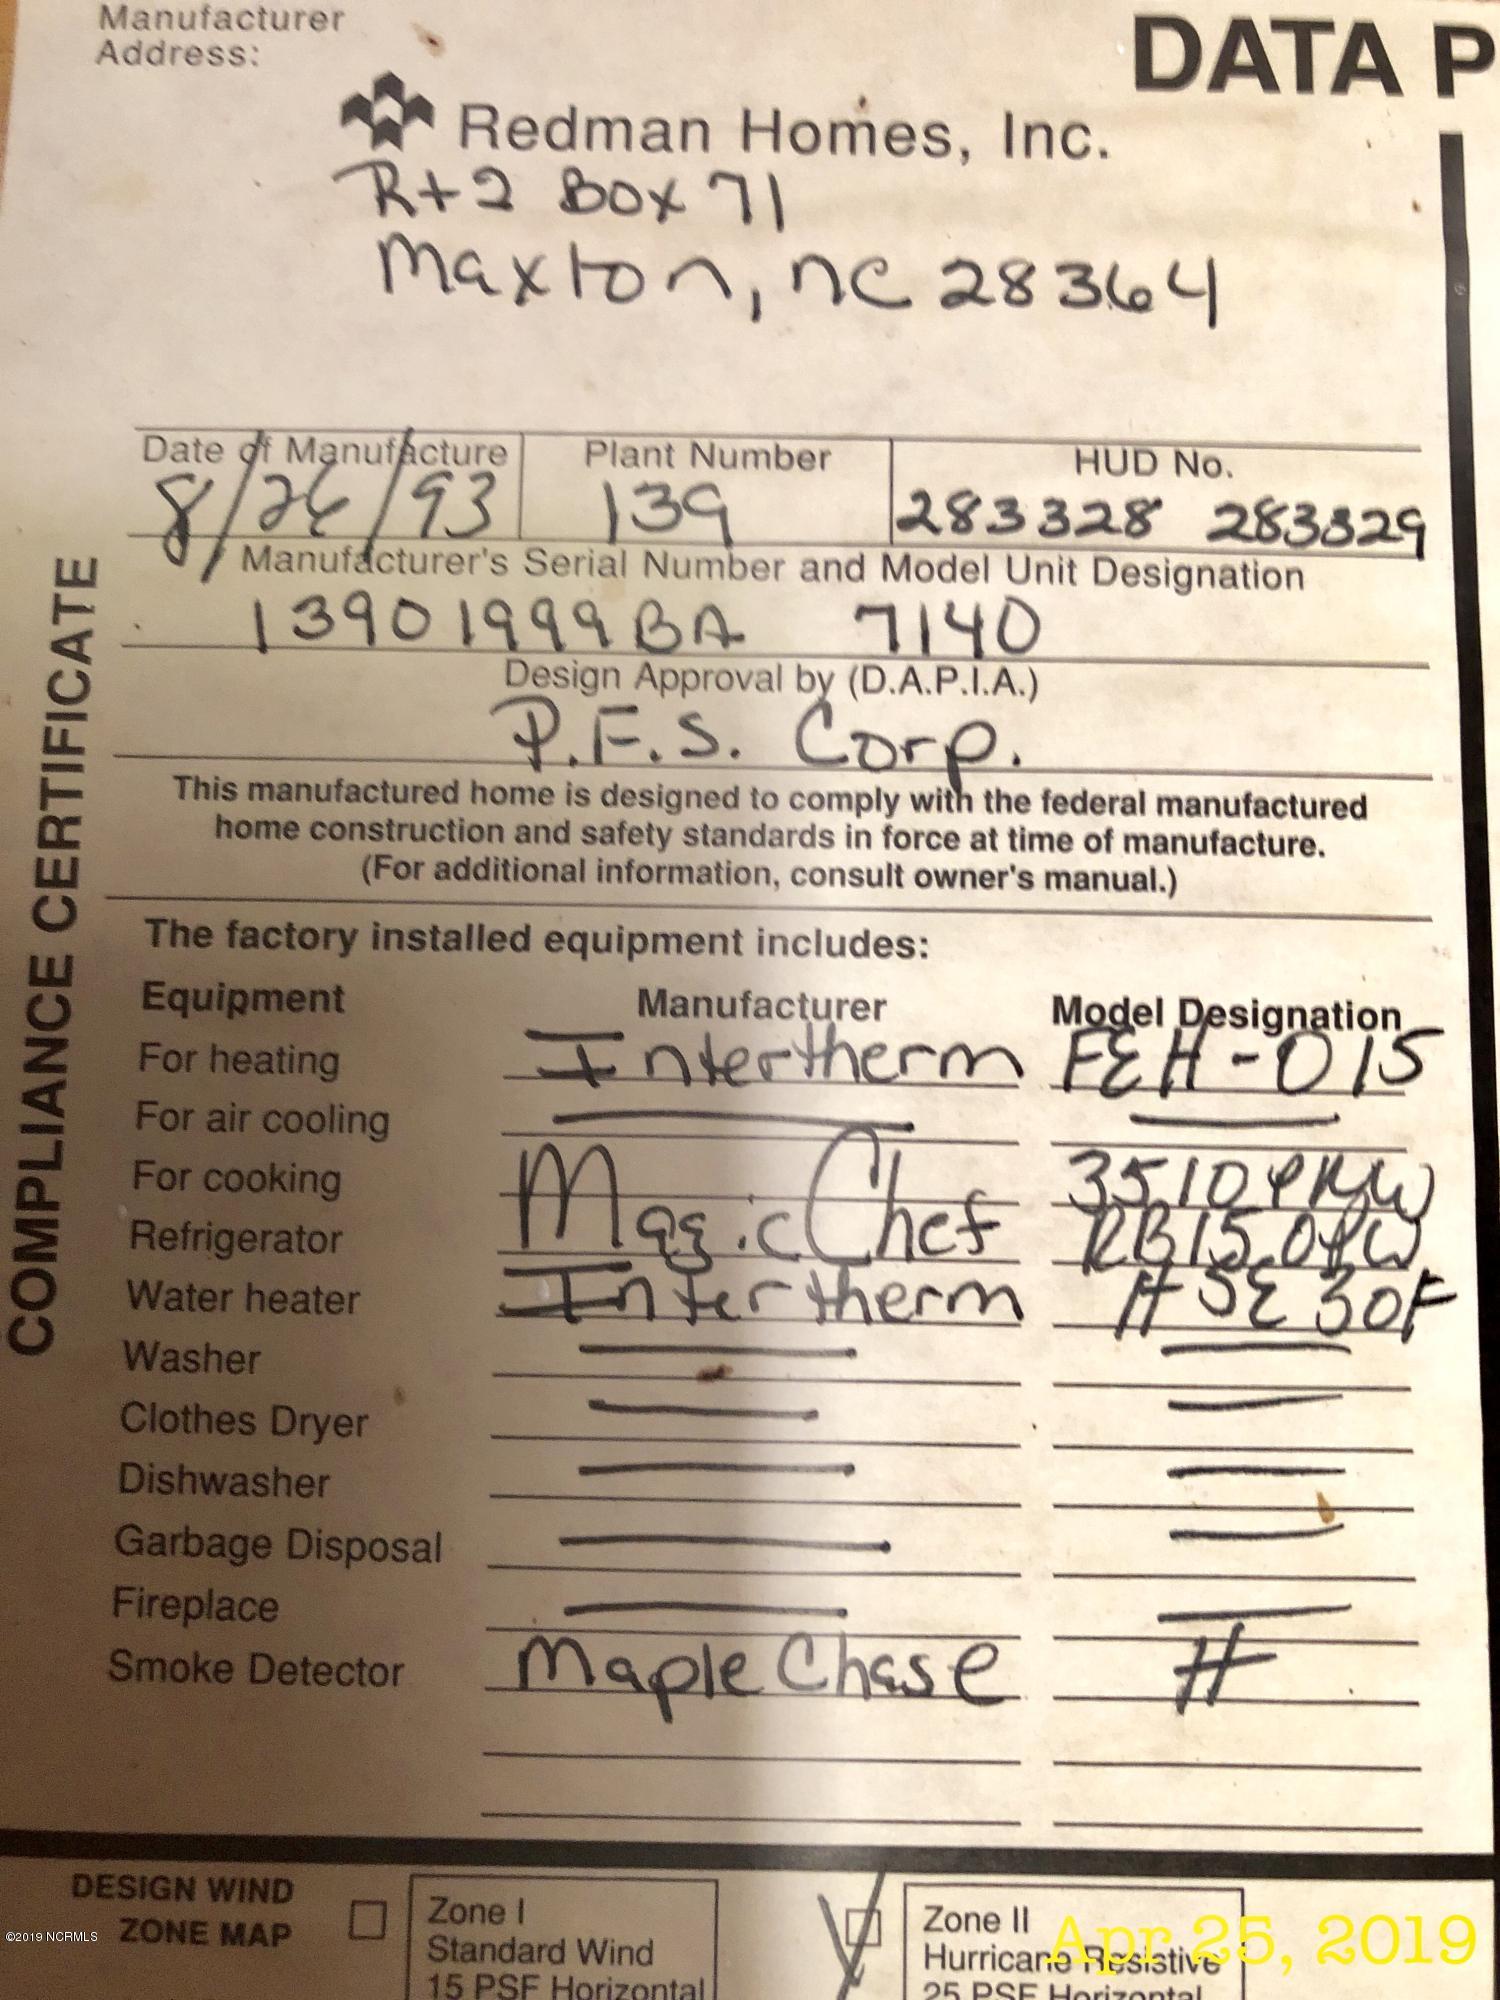 Manufacturer
Address:
DATA P
Redman Homes, Inc.
Rt 2 Box 71
Maxton, NC 28364
Date of Manufacture Plant Number HUD No.
8/26/93 139 283328 283329
Manufacturer's Serial Number and Model Unit Designation
13901999BA 7140
Design Approval by (D.A.P.I.A.)
P.F.S. Corp.
This manufactured home is designed to comply with the federal manufactured
home construction and safety standards in force at time of manufacture.
(For additional information, consult owner's manual.)
COMPLIANCE CERTIFICATE
The factory installed equipment includes:
Equipment Manufacturer Model Designation
For heating Intertherm FEH-015
For air cooling
For cooking Magic Chef
Refrigerator
Water heater Intertherm HSE 30F
Washer
Clothes Dryer
Dishwasher
Garbage Disposal
Fireplace
Smoke Detector Maple Chase
DESIGN WIND
ZONE MAP
Zone I
Standard Wind
15 PSF Horizontal
Zone II
Hurricane Resistive
25 PSF Horizontal
Apr 25, 2019
©2019 NCRMLS